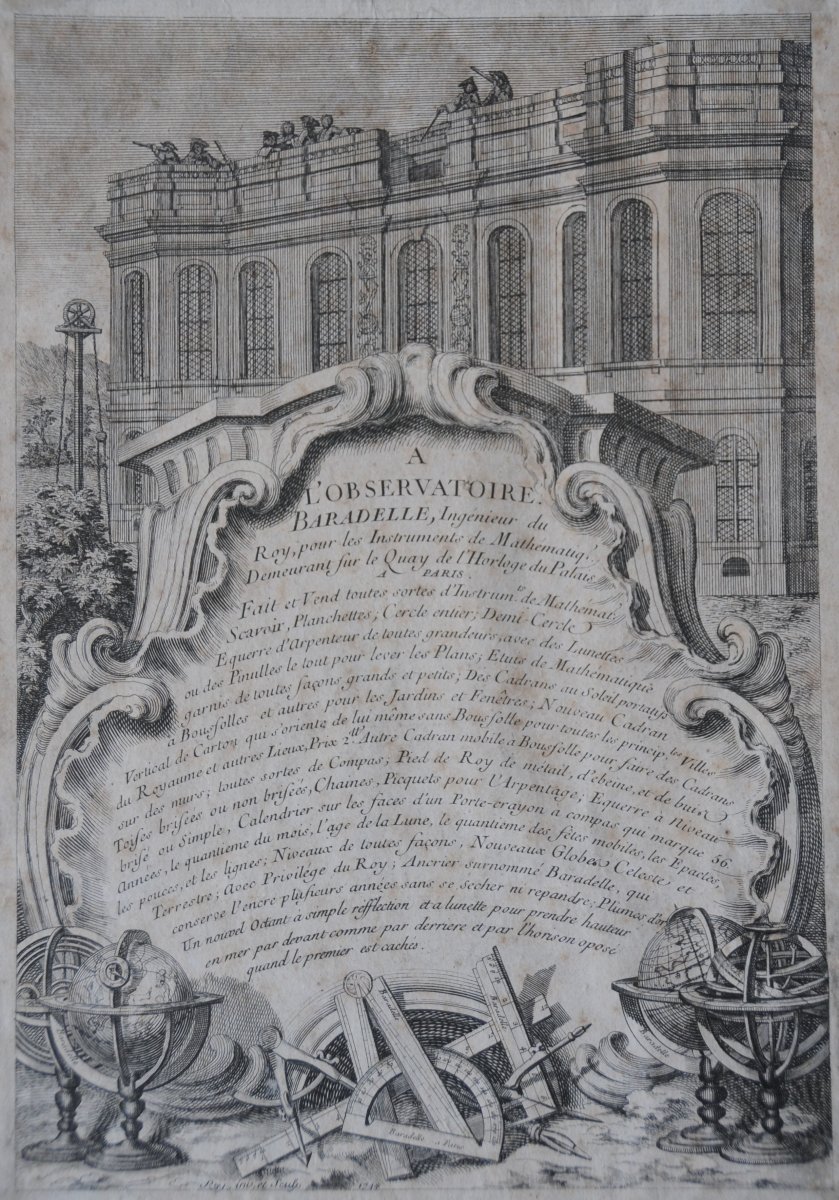 A
L'OBSERVATOIRE.
BARADELLE, Ingénieur du
Roy, pour les Instruments de Mathematiq.
Demeurant sur le Quay de l'Horloge du Palais
A PARIS.
Fait et Vend toutes sortes d'Instrum.ts de Mathémat.
Scavoir, Planchettes; Cercle entier; Demi-Cercle
Equerre d'Arpenteur de toutes grandeurs, avec des Lunettes
ou des Pinulles le tout pour lever les Plans; Etuis de Mathématique
garnis de toutes façons grands et petits; Des Cadrans au Soleil portatifs
a Boussolles et autres pour les Jardins et Fenêtres; Nouveau Cadran
Vertical de Carton qui s'oriente de lui même sans Boussolle pour toutes les princip.les Villes
du Royaume et autres Lieux, Prix 2.tt Autre Cadran mobile à Boussolle pour faire des Cadrans
sur des murs; toutes sortes de Compas; Pied de Roy de métail, d'ebeine, et de buis
Toises brisées ou non brisées, Chaines, Picquets pour l'Arpentage; Equerre à Niveau
brisé ou Simple, Calendrier sur les faces d'un Porte-crayon à compas qui marque 56
Années, le quantieme du mois, l'age de la Lune, le quantième des fêtes mobiles, les Epactes,
les pouces, et les lignes; Niveaux de toutes façons, Nouveaux Globes Celeste et
Terrestre; Avec Privilége du Roy; Ancrier surnommé Baradelle, qui
conserve l'encre plusieurs années sans se secher ni repandre; Plumes d'or
Un nouvel Octant à simple réfflection et a lunette pour prendre hauteur
en mer par devant comme par derriere et par l'horison oposé
quand le premier est caché.
Baradelle
Baradelle
Baradelle
Baradelle a Paris